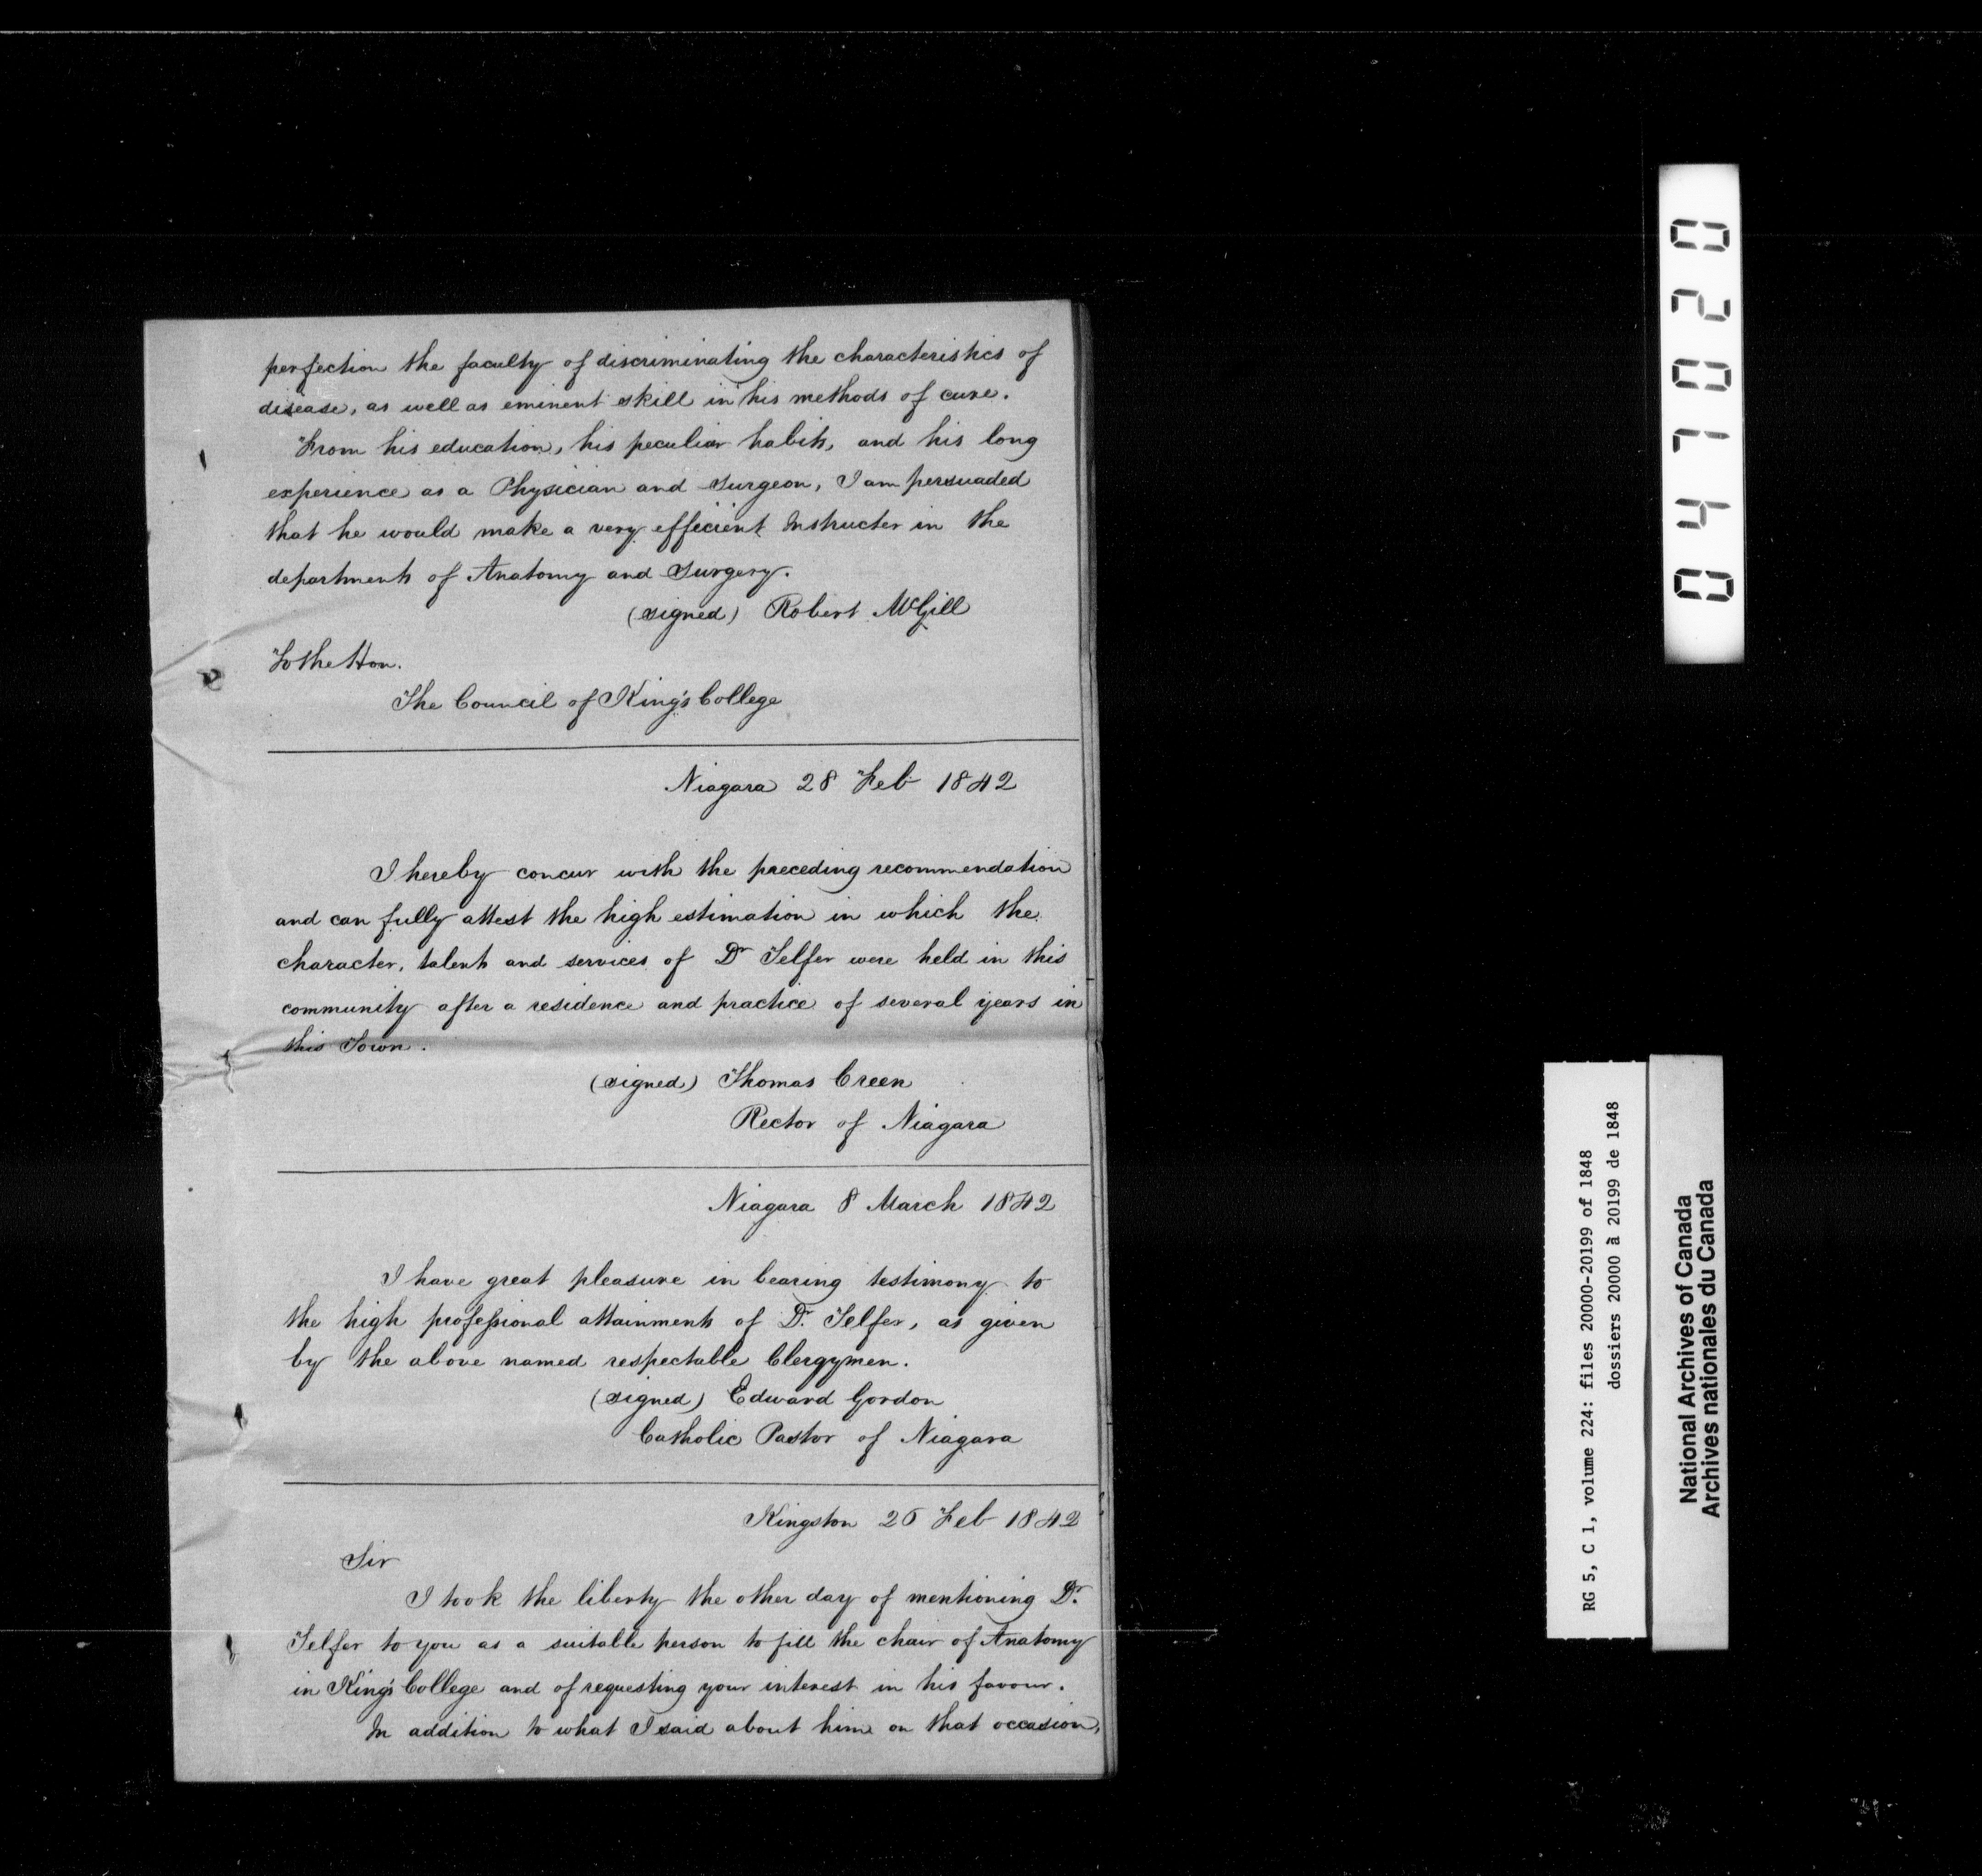 perfection the faculty of discriminating the characteristics of
disease, as well as eminent skill in his methods of cure.
From his education, his peculiar habits, and his long
experience as a Physician and Surgeon, I am persuaded
that he would make a very efficient Instructer in the
departments of Anatomy and Surgery.
(signed) Robert McGill
To the Hon.
The Council of King's College
Niagara 28 Feb 1842
I hereby concur with the preceding recommendation
and can fully attest the high estimation in which the
character, talents and services of Dr Telfer were held in this
community after a residence and practice of several years in
this Town.
(signed) Thomas Creen
Rector of Niagara
Niagara 8 March 1842
I have great pleasure in bearing testimony to
the high professional attainments of Dr. Telfer, as given
by the above named respectable Clergymen.
(signed) Edward Gordon
Catholic Pastor of Niagara
Kingston 26 Feb 1842
Sir
I took the liberty the other day of mentioning Dr.
Telfer to you as a suitable person to fill the chair of Anatomy
in King's College and of requesting your interest in his favour.
In addition to what I said about him on that occasion,
047020
RG 5, C 1, volume 224: files 20000-20199 of 1848
dossiers 20000 à 20199 de 1848
National Archives of Canada
Archives nationales du Canada